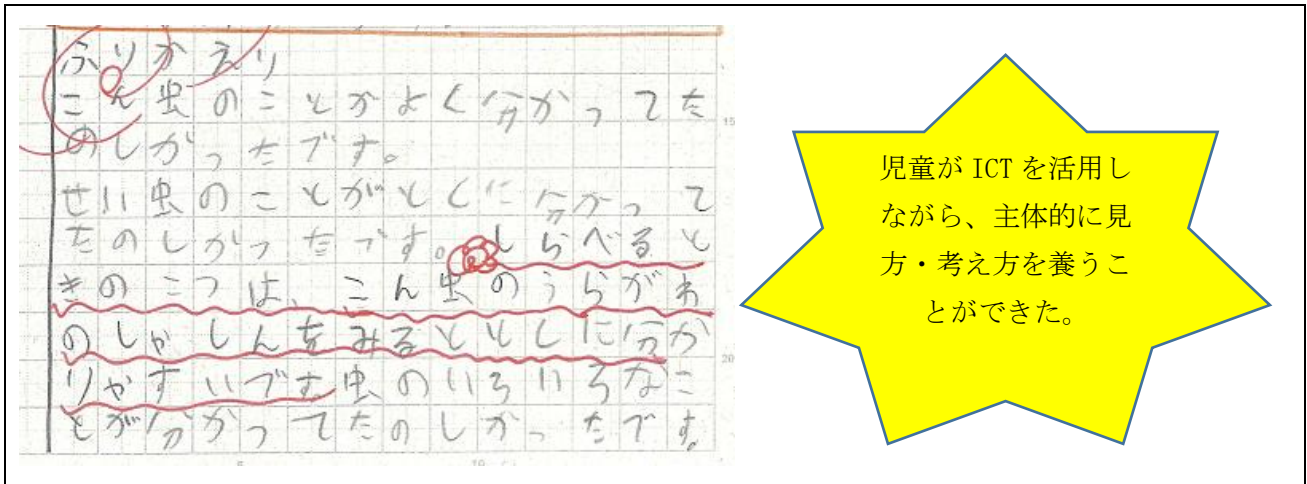 ふりかえり
こん虫のことがよく分かってた
のしかったです。
せい虫のことがとくに分かって
たのしかったです。しらべると
きのこつは、こん虫のうらがわ
のしゃしんをみるととくに分か
りやすいです。虫のいろいろなこ
とが分かってたのしかったです。
15
20
5
10
児童が ICT を活用し
ながら、主体的に見
方・考え方を養うこ
とができた。